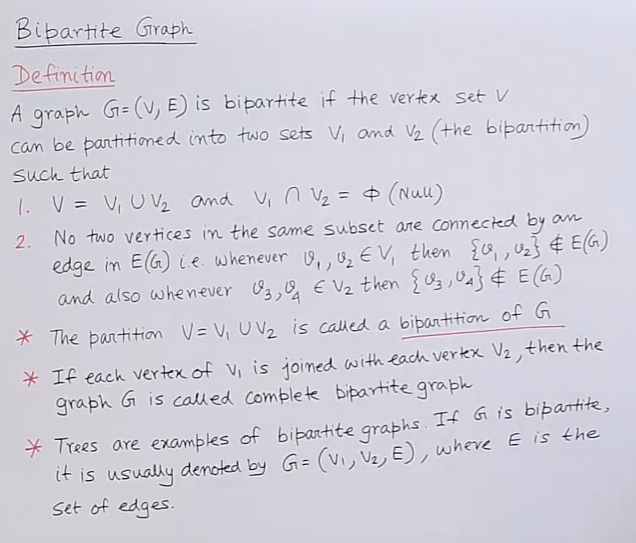 Bipartite Graph
Definition
A graph G=(V, E) is bipartite if the vertex set V
can be partitioned into two sets V₁ and V₂ (the bipartition)
such that
1. V = V₁ ∪ V₂ and V₁ ∩ V₂ = ϕ (Null)
2. No two vertices in the same subset are connected by an
edge in E(G) i.e. whenever v₁, v₂ ∈ V₁ then {v₁, v₂} ∉ E(G)
and also whenever v₃, v₄ ∈ V₂ then {v₃, v₄} ∉ E(G)
* The partition V = V₁ ∪ V₂ is called a bipartition of G
* If each vertex of V₁ is joined with each vertex V₂, then the
graph G is called complete bipartite graph
* Trees are examples of bipartite graphs. If G is bipartite,
it is usually denoted by G = (V₁, V₂, E), where E is the
set of edges.